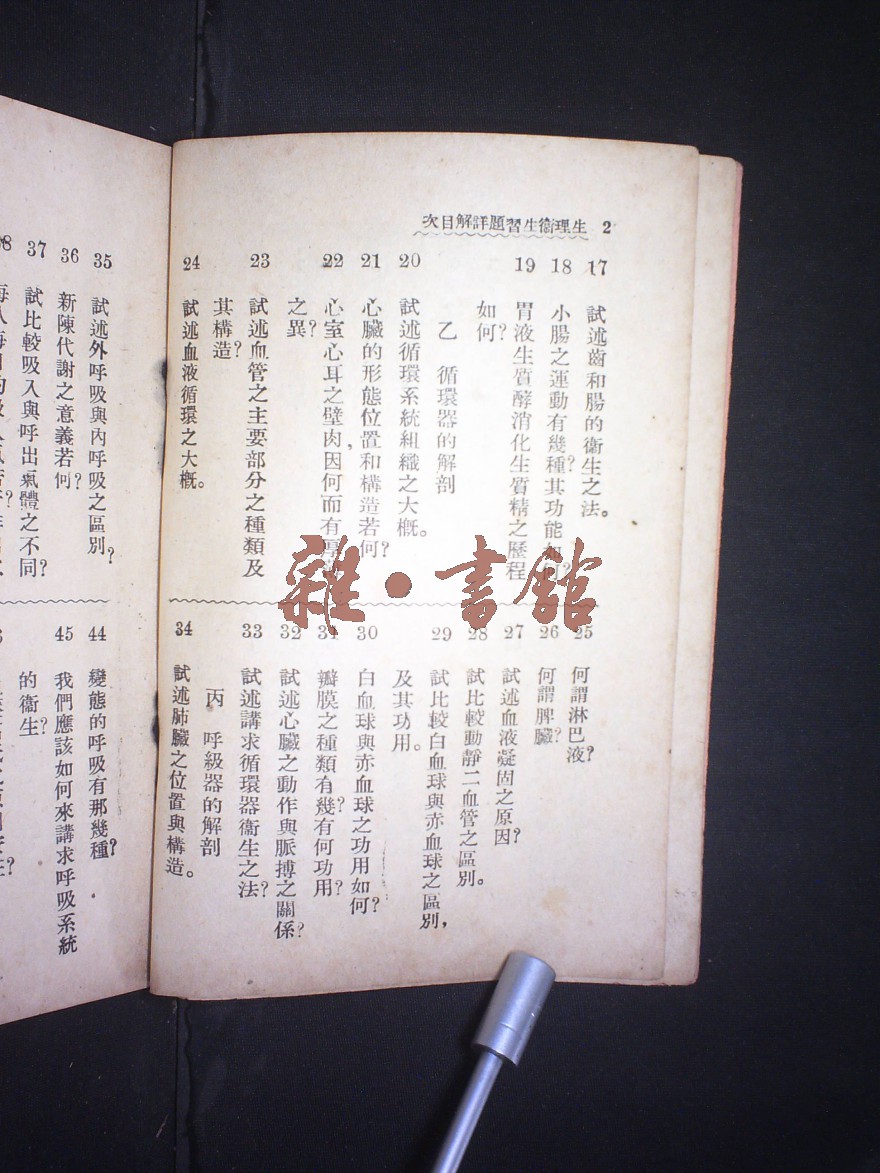 生理衞生習題詳解目次 2
17 試述齒和腸的衞生之法。
18 小腸之運動有幾種?其功能如何?
19 胃液生質酵消化生質精之歷程
如何?
乙 循環器的解剖
20 試述循環系統組織之大概。
21 心臟的形態位置和構造若何?
22 心室心耳之壁肉,因何而有厚
之異?
23 試述血管之主要部分之種類及
其構造?
24 試述血液循環之大概。
25 何謂淋巴液?
26 何謂脾臟?
27 試述血液凝固之原因?
28 試比較動靜二血管之區別。
29 試比較白血球與赤血球之區別,
及其功用。
30 白血球與赤血球之功用如何?
31 瓣膜之種類有幾?有何功用?
32 試述心臟之動作與脈搏之關係?
33 試述講求循環器衞生之法?
丙 呼級器的解剖
34 試述肺臟之位置與構造。
35 試述外呼吸與內呼吸之區別?
36 新陳代謝之意義若何?
37 試比較吸入與呼出氣體之不同?
44 變態的呼吸有那幾種?
45 我們應該如何來講求呼吸系統
的衞生?
雜·書館